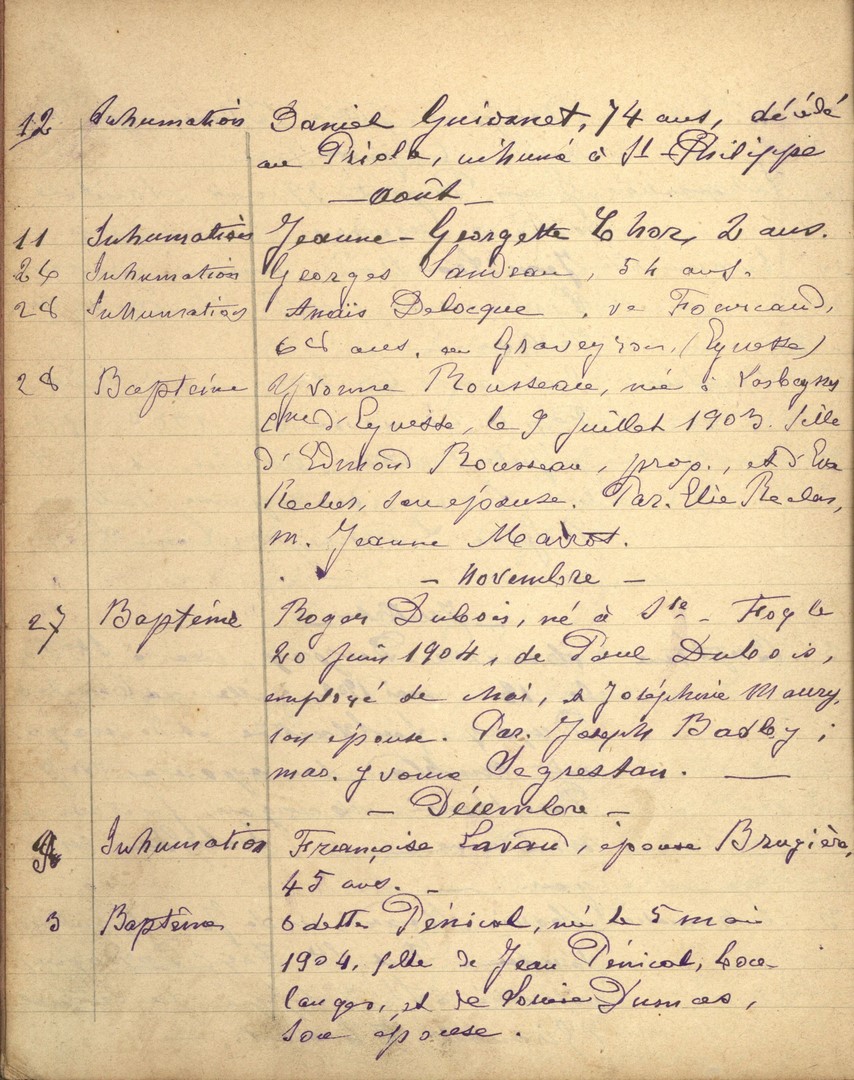 12 Inhumation Daniel Guivanet, 74 ans, décédé
au Priola, inhumé à St-Philippe
— Août —
11 Inhumation Jeanne-Georgette 2 ans.
26 Inhumation Georges Sandeau, 54 ans.
28 Inhumation Anaïs Delocque, ve Fourcaud,
68 ans, au (Eynesse)
28 Baptême Yvonne Rousseau, née à
cne d'Eynesse, le 9 juillet 1903. fille
d'Edmond Rousseau, prop., et d'Eva
son épouse. Par. Elie Reclus,
m. Jeanne
— Novembre —
27 Baptême Roger Dubois, né à Ste-Foy le
20 Juin 1904, de Paul Dubois,
employé de et Joséphine Maury,
son épouse. Par. Joseph
mar. Yvonne Segrestan. —
— Décembre —
Inhumation Françoise Lavaud, épouse Brugière,
45 ans. —
3 Baptême Odette Pénicot, née le 5 mai
1904, fille de Jean Pénicot, bou-
langer, et de Dumas,
son épouse.